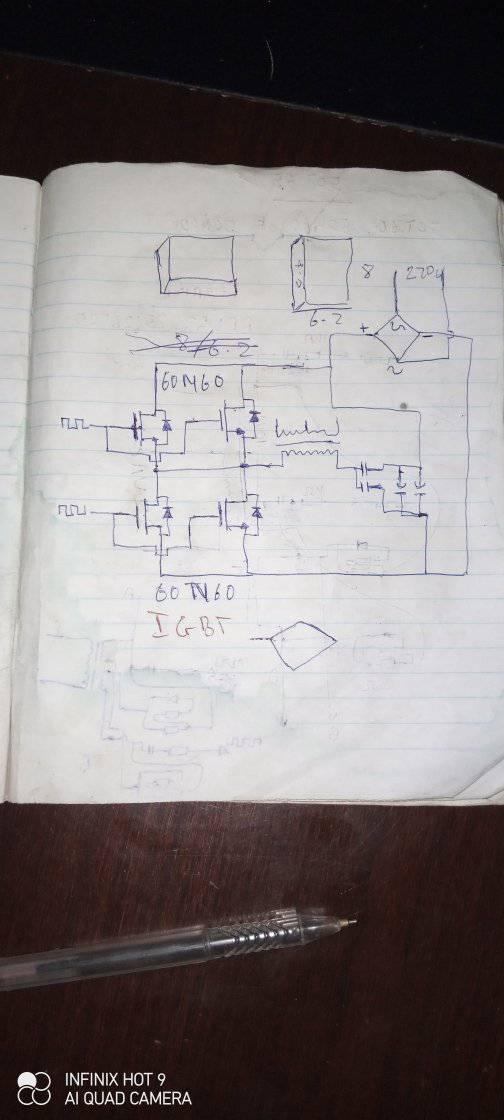 8
220v
6.2
8/6.2
+
-
~
60N60
60N60
IGBT
INFINIX HOT 9
AI QUAD CAMERA